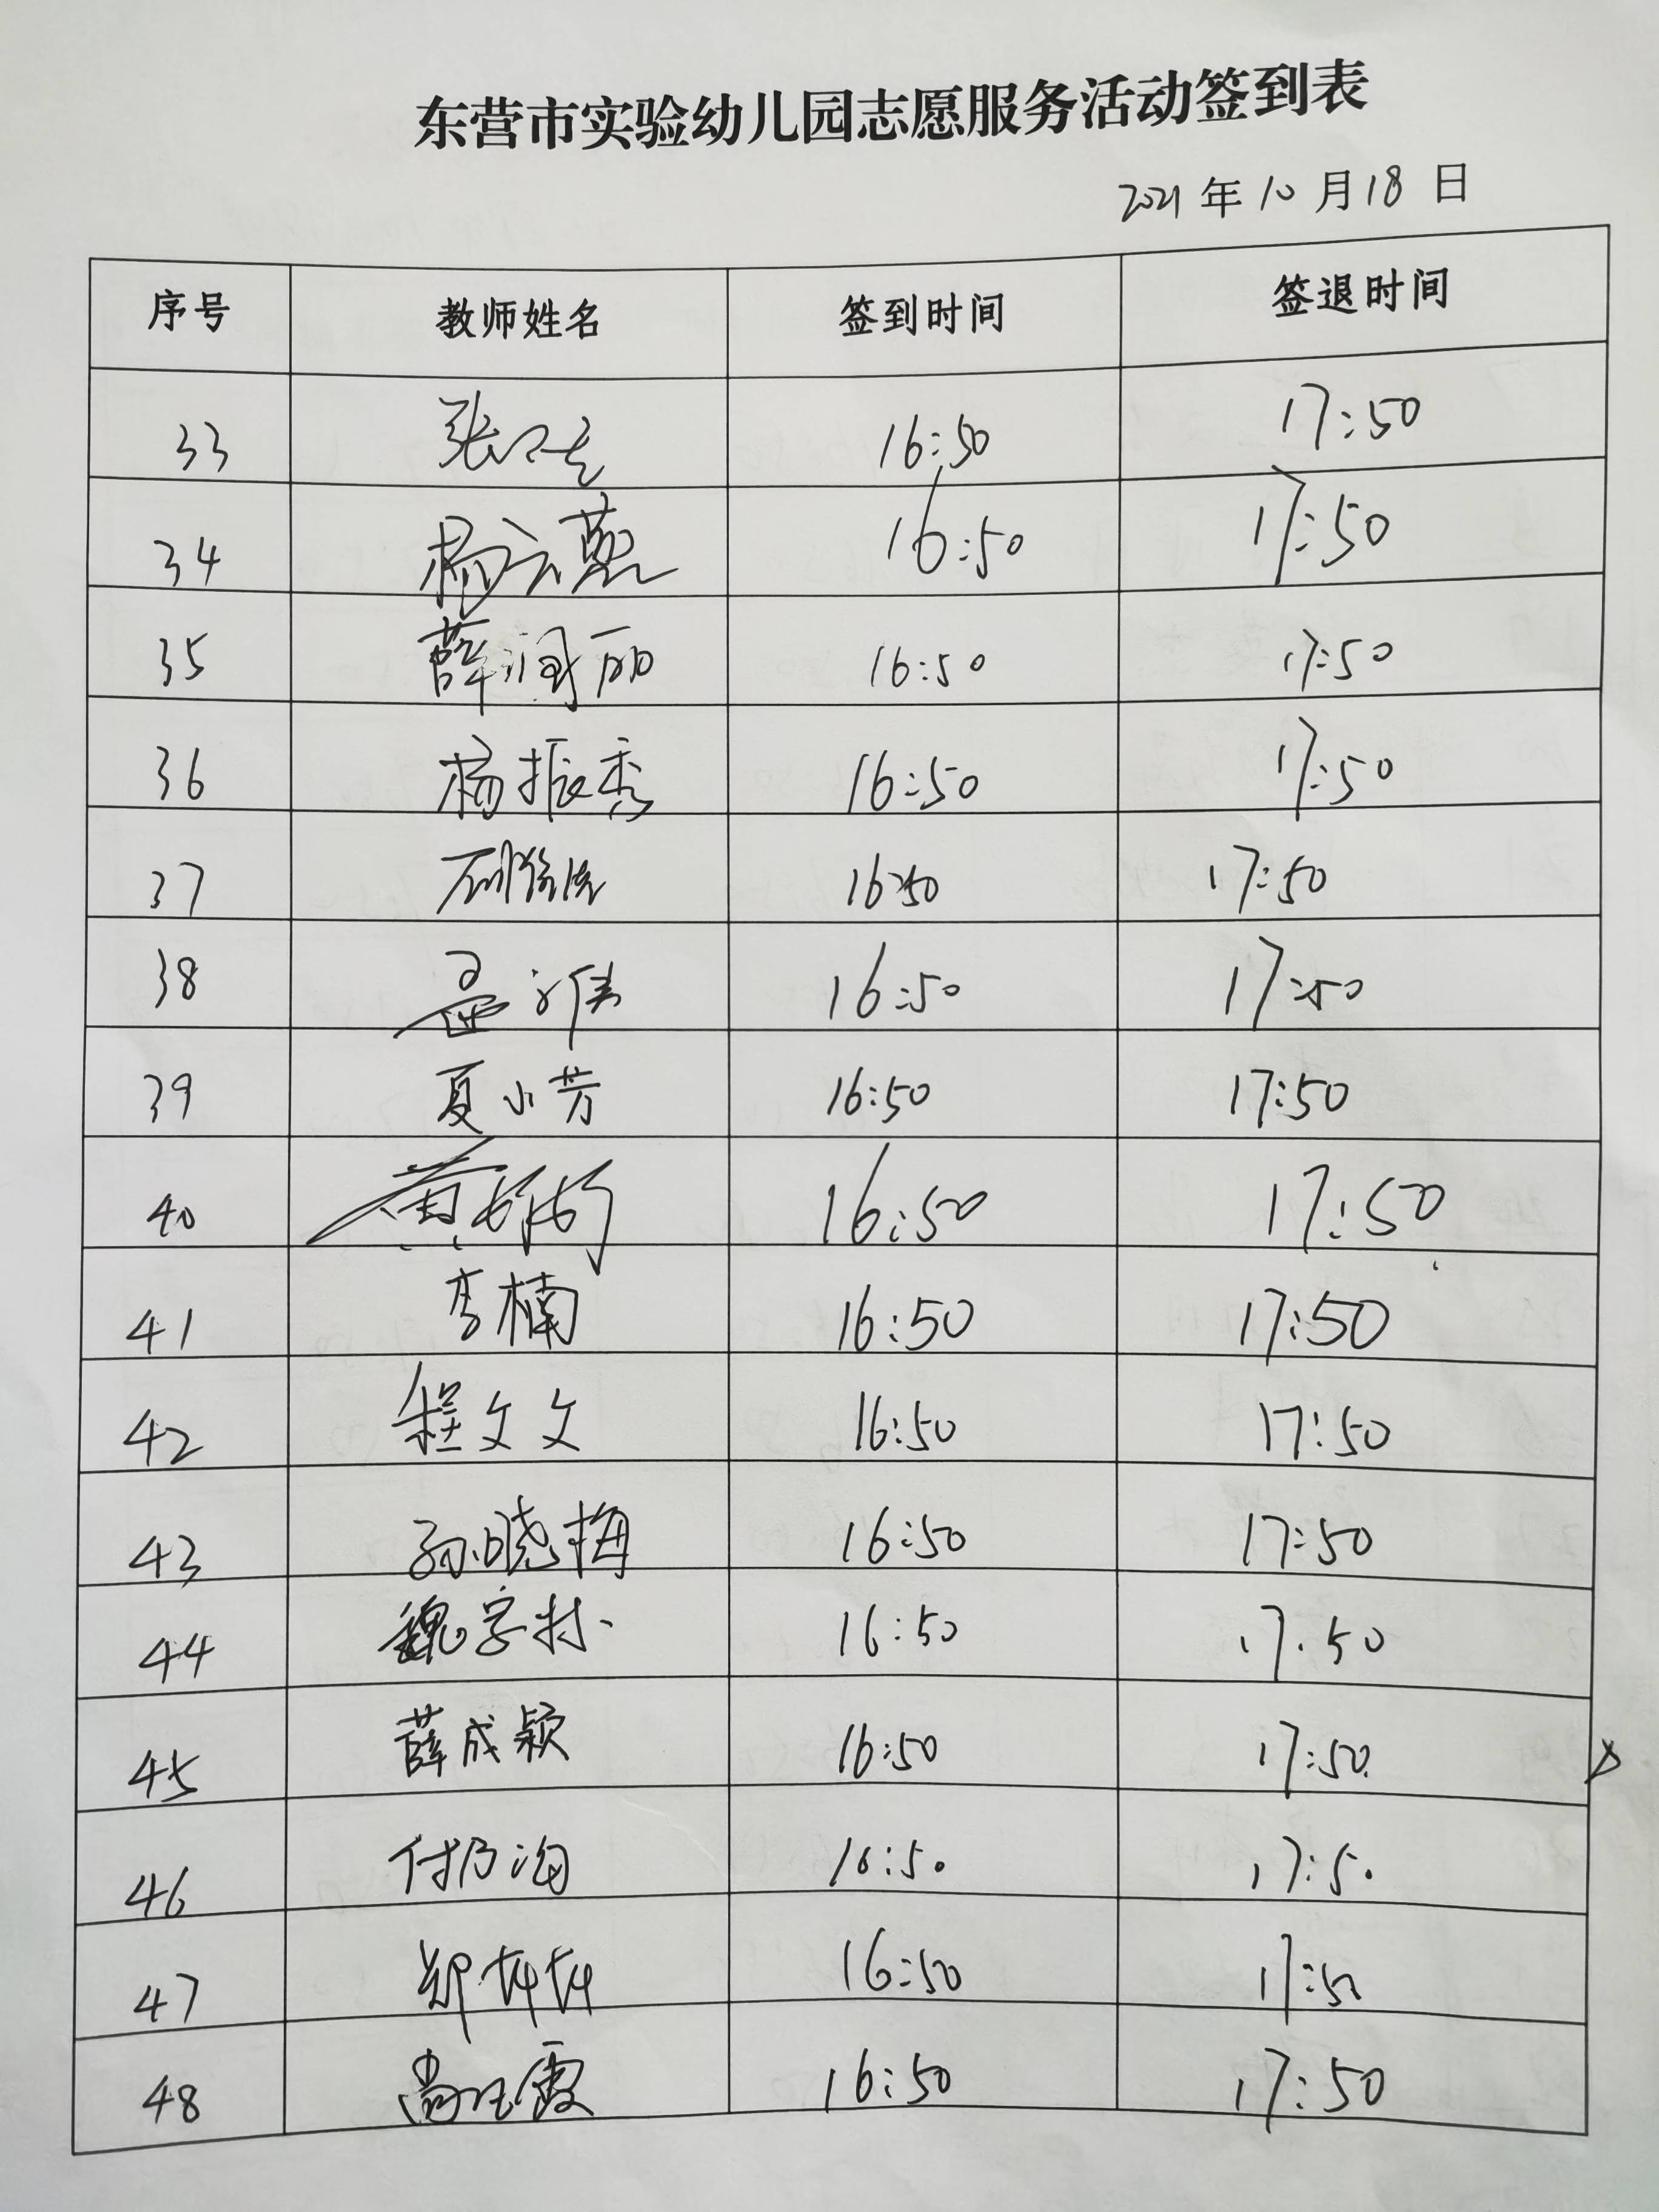 东营市实验幼儿园志愿服务活动签到表
2021年10月18日
序号 教师姓名 签到时间 签退时间
33 张 16:50 17:50
34 杨云慧 16:50 17:50
35 薛润丽 16:50 17:50
36 杨振秀 16:50 17:50
37 16:50 17:50
38 孟 16:50 17:50
39 夏小芳 16:50 17:50
40 黄 16:50 17:50
41 李楠 16:50 17:50
42 程文文 16:50 17:50
43 孙晓梅 16:50 17:50
44 魏 16:50 17:50
45 薛成颖 16:50 17:50
46 付乃海 16:50 17:50
47 郑 16:50 17:50
48 尚玉霞 16:50 17:50